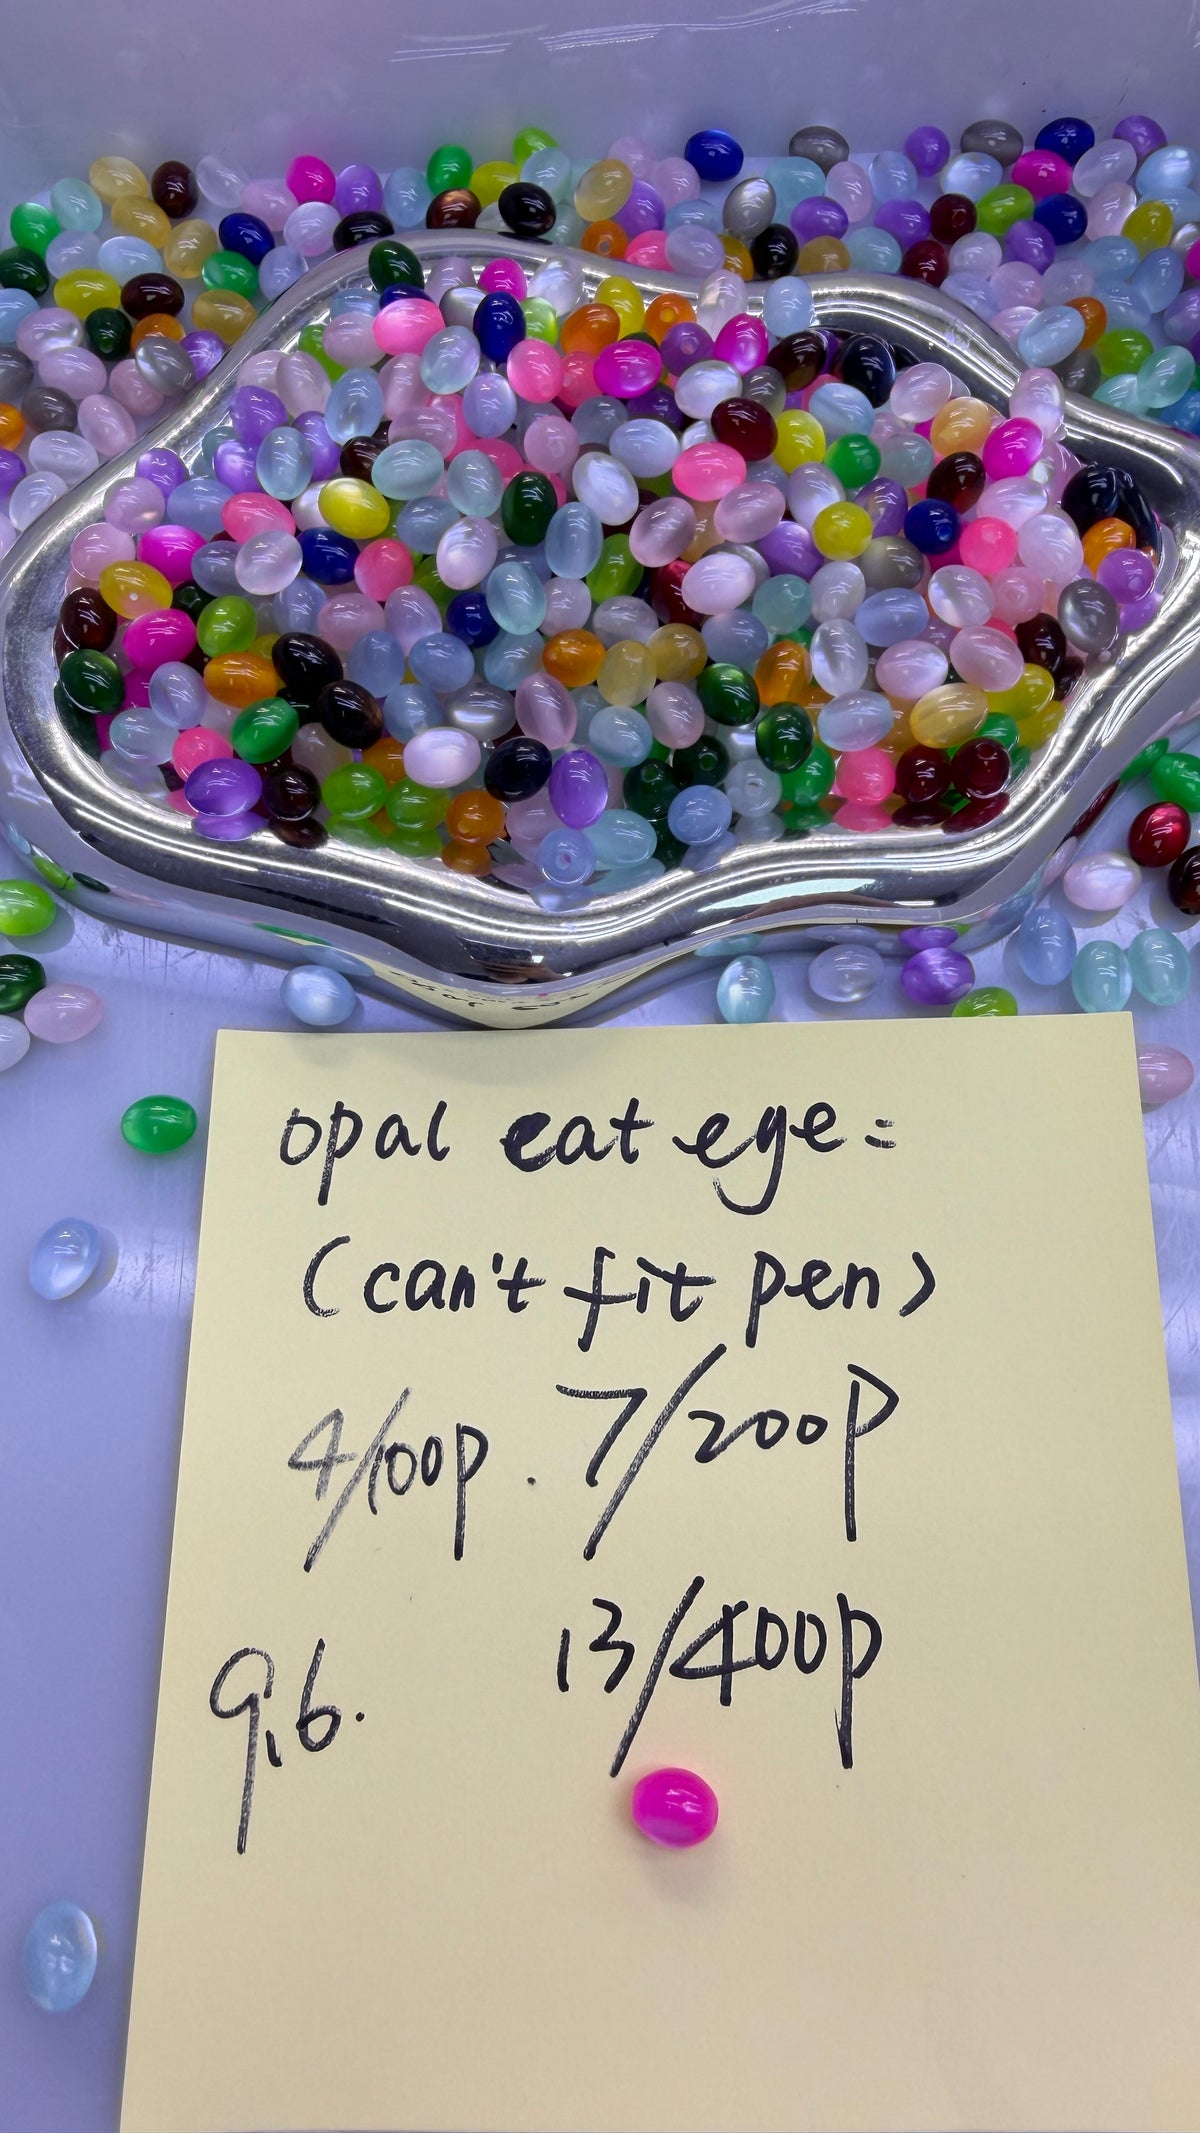 opal eat eye:
(can't fit pen)
4/100p. 7/200P
13/400p
9.6.